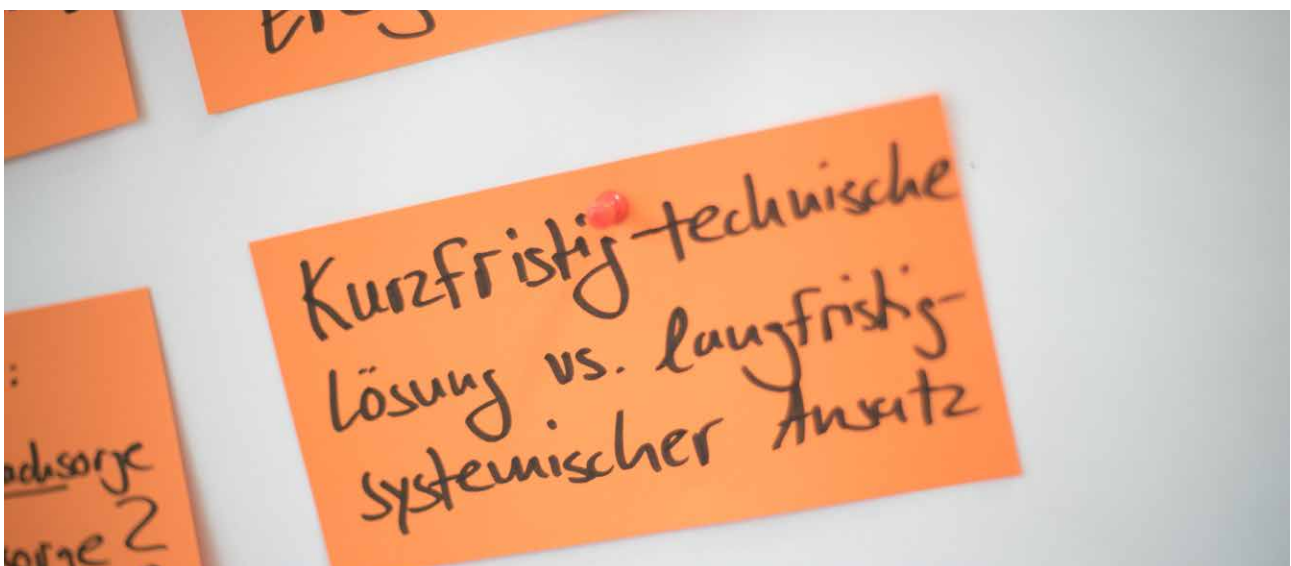 Kurzfristig-technische
lösung vs. langfristig-
systemischer Ansatz
: